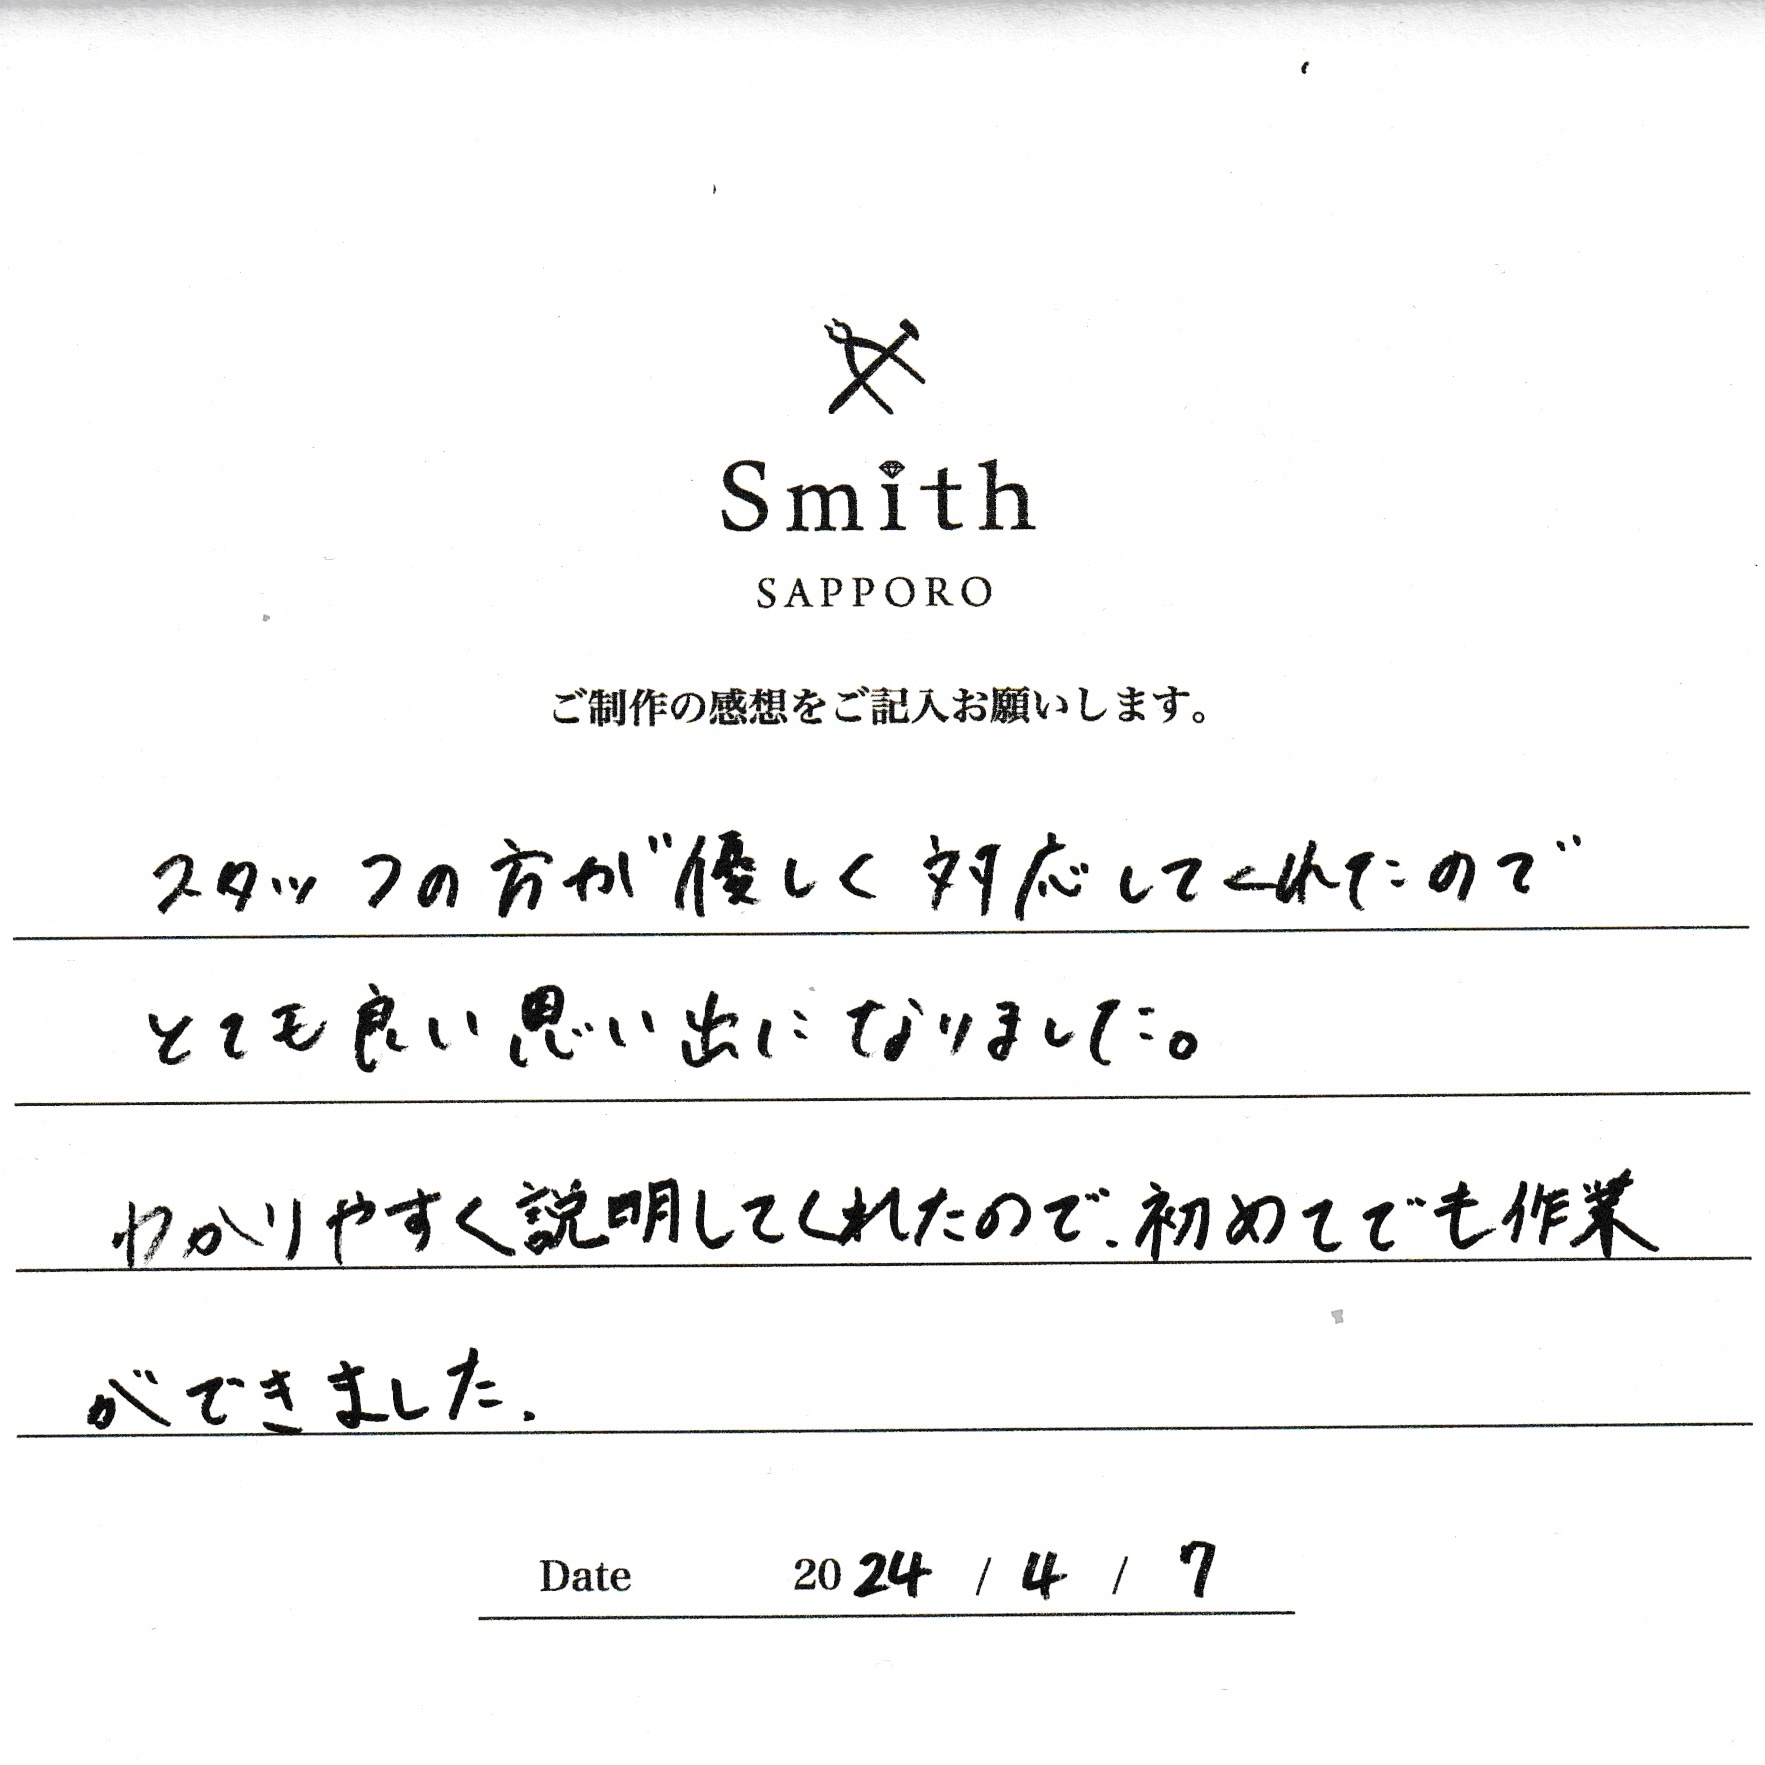 Smith
SAPPORO
ご制作の感想をご記入お願いします。
スタッフの方が優しく対応してくれたので
とても良い思い出になりました。
わかりやすく説明してくれたので、初めてでも作業
ができました.
Date 2024 / 4 / 7